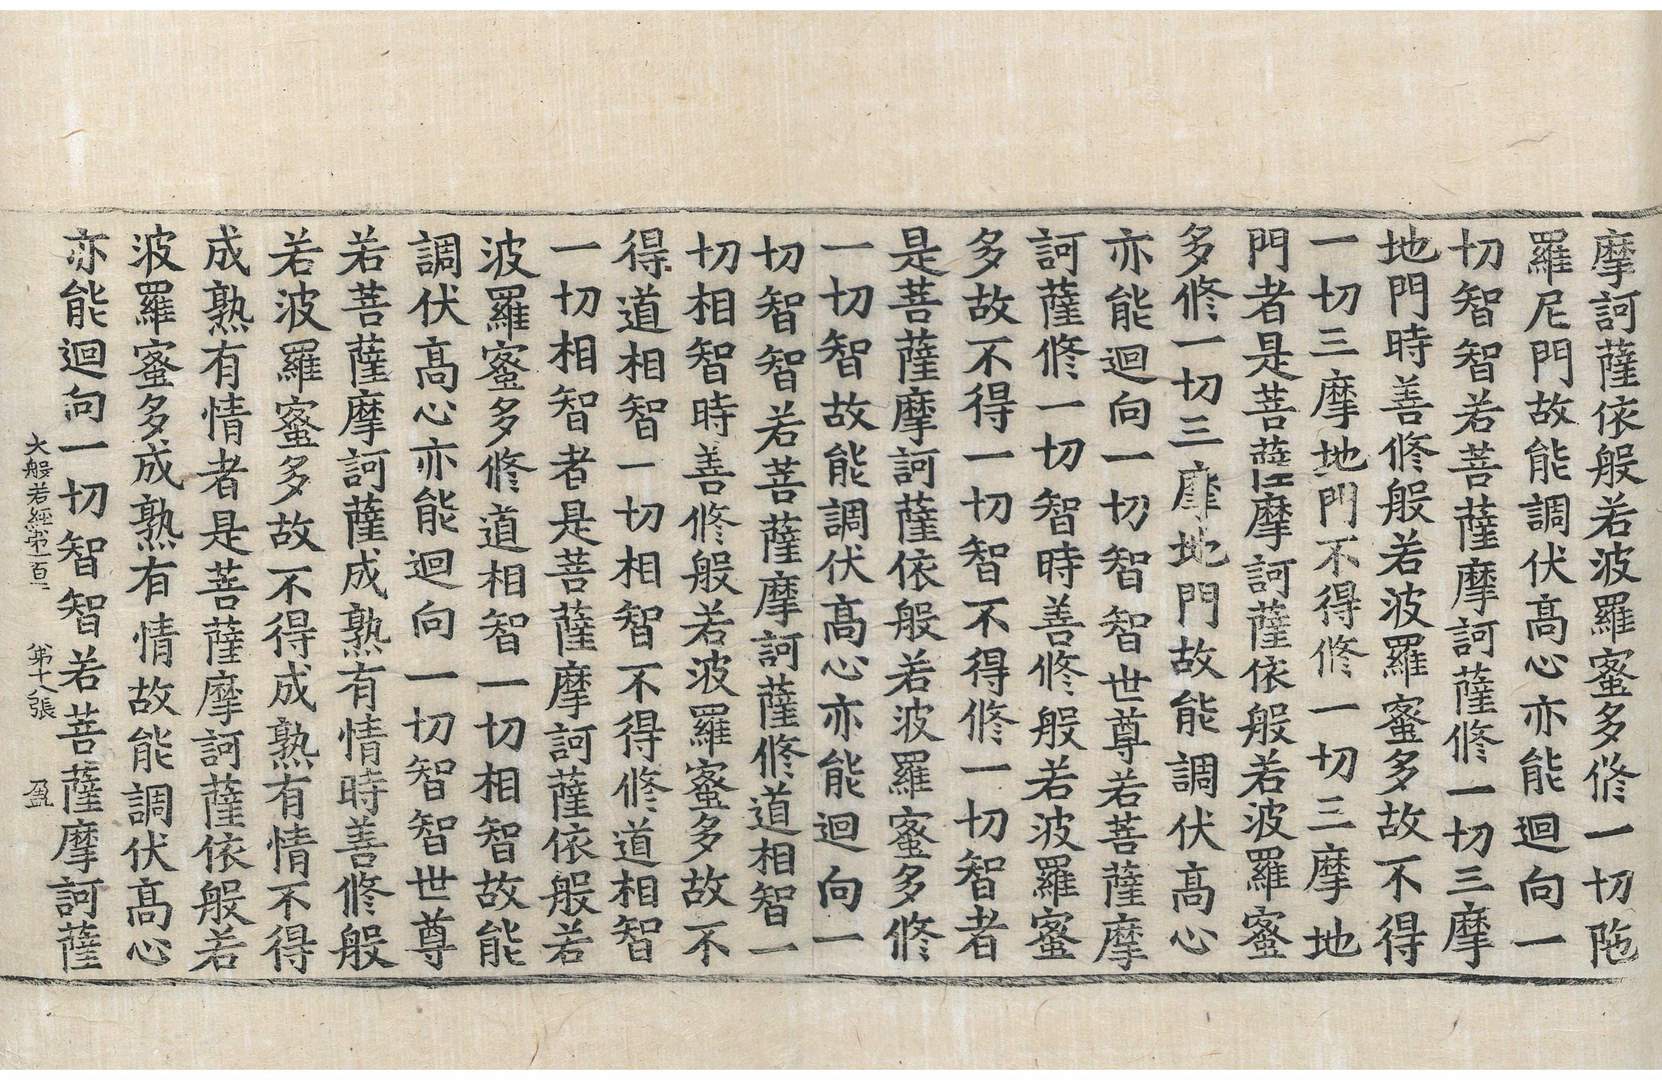 摩訶薩依般若波羅蜜多修一切陁
羅尼門故能調伏高心亦能迴向一
切智智若菩薩摩訶薩修一切三摩
地門時善修般若波羅蜜多故不得
一切三摩地門不得修一切三摩地
門者是菩薩摩訶薩依般若波羅蜜
多修一切三摩地門故能調伏高心
亦能迴向一切智智世尊若菩薩摩
訶薩修一切智時善修般若波羅蜜
多故不得一切智不得修一切智者
是菩薩摩訶薩依般若波羅蜜多修
一切智故能調伏高心亦能迴向一
切智智若菩薩摩訶薩修道相智一
切相智時善修般若波羅蜜多故不
得道相智一切相智不得修道相智
一切相智者是菩薩摩訶薩依般若
波羅蜜多修道相智一切相智故能
調伏高心亦能迴向一切智智世尊
若菩薩摩訶薩成熟有情時善修般
若波羅蜜多故不得成熟有情不得
成熟有情者是菩薩摩訶薩依般若
波羅蜜多成熟有情故能調伏高心
亦能迴向一切智智若菩薩摩訶薩
大般若經第一百二 第十八張 盈